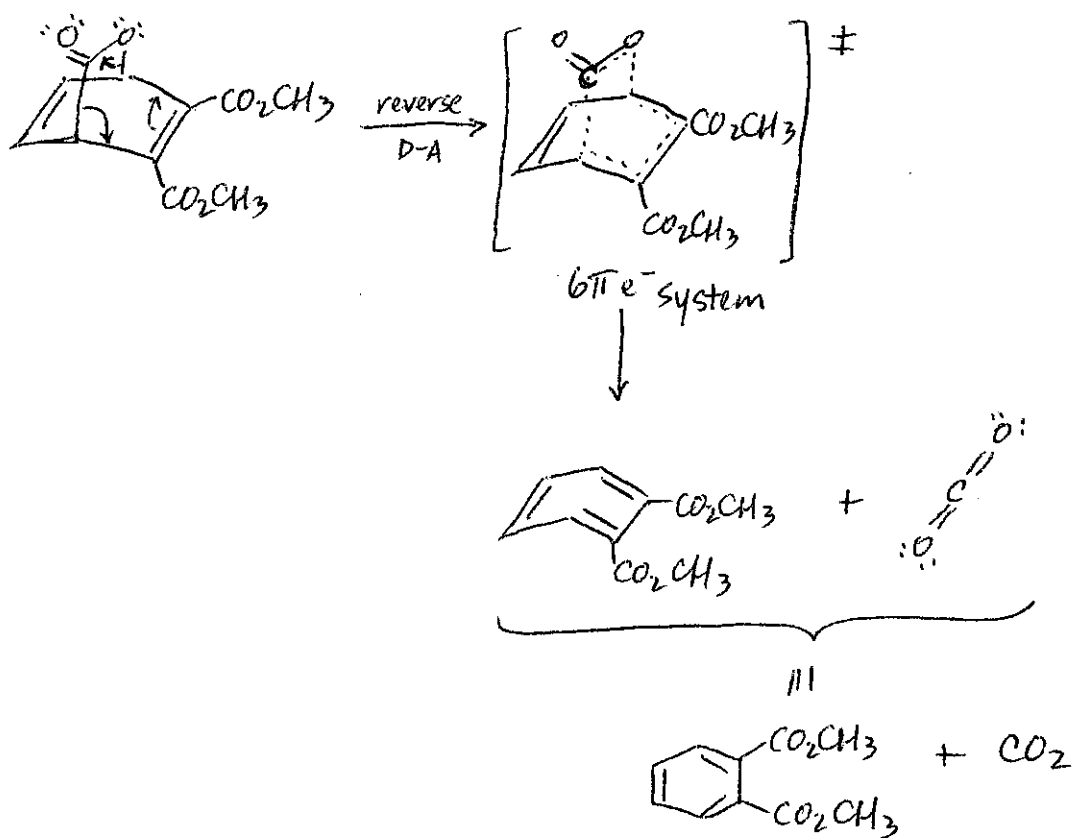 O O
CO₂CH₃
CO₂CH₃
reverse
D-A
O O
C
CO₂CH₃
CO₂CH₃
‡
6π e⁻ system
CO₂CH₃
CO₂CH₃
+
O
C
O
CO₂CH₃
CO₂CH₃
+ CO₂